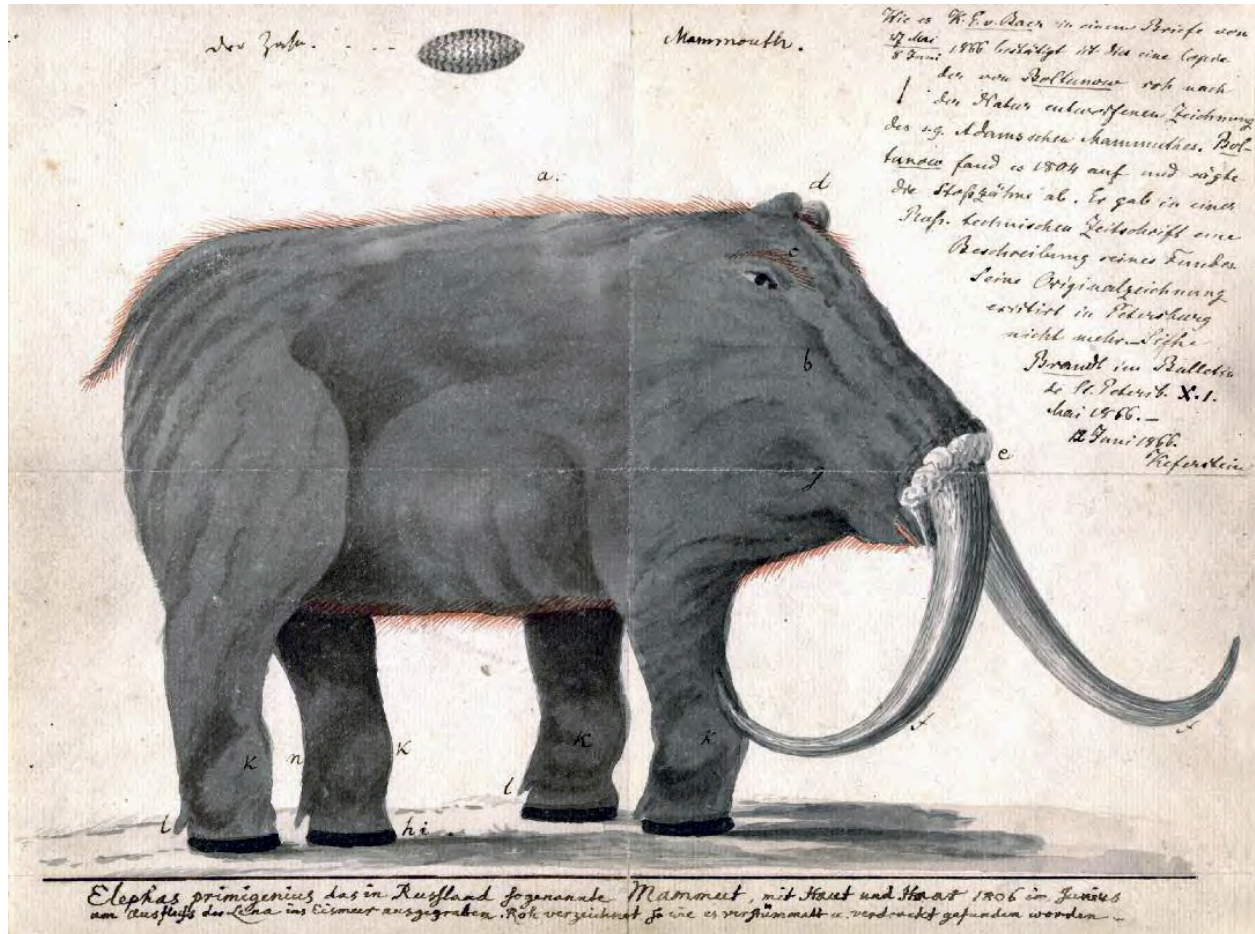 Der Zahn. . . . - -
Mammouth.
Wie es K. E. v. Baer in einem Briefe vom
27 Mai
8 Juni 1866 bestätigt ist dies eine Copie
der von Boltunow roh nach
der Natur entworfenen Zeichnung
des s.g. Adamsschen Mammuthes. Bol-
tunow fand es 1804 auf und sägte
die Stoßzähne ab. Er gab in einer
Russ. technischen Zeitschrift eine
Beschreibung seines Fundes.
Seine Originalzeichnung
existirt in Petersburg
nicht mehr. Siehe
Brandt im Bulletin
de St. Petersb. X. 1.
Mai 1866.—
12 Juni 1866.
Keferstein
a.
d
c
b
e
g
f
f
k
n
k
k
k
l
l
h i
Elephas primigenius das in Russland sogenannte Mammut, mit Haut und Haar 1806 im Junius
am Ausfluss des Lena ins Eismeer ausgegraben. Roh verzeichnet so wie es verstümmelt u. verdreckt gefunden worden